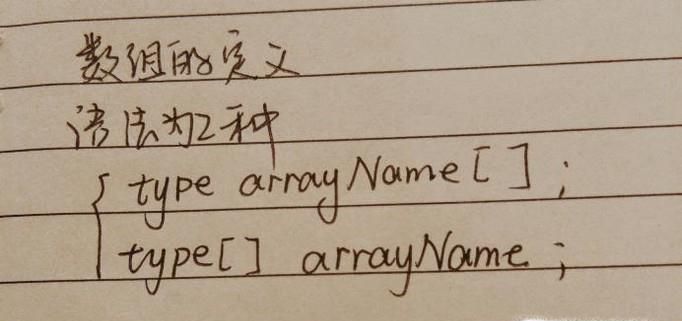 数组的定义
语法为2种
{ type arrayName[ ];
type[ ] arrayName;